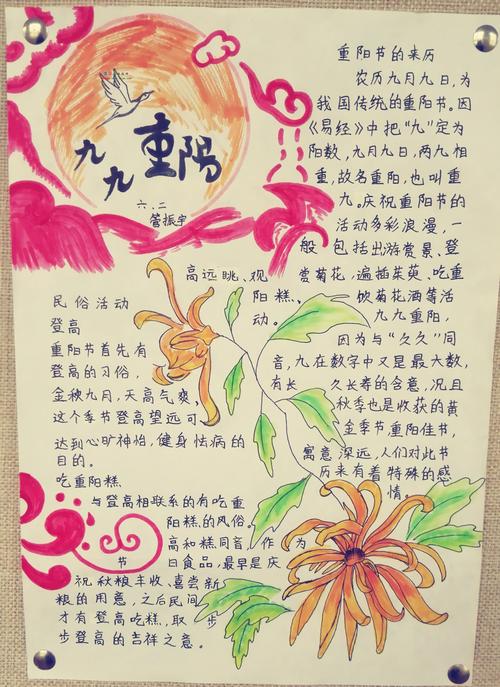 九九重阳
六.二
管振宇
重阳节的来历
农历九月九日,为
我国传统的重阳节。因
《易经》中把“九”定为
阳数,九月九日,两九相
重,故名重阳,也叫重
九。庆祝重阳节的
活动多彩浪漫,一
般包括出游赏景、登
高远眺、观赏菊花,遍插茱萸、吃重
阳糕、饮菊花酒等活
动。九九重阳,
因为与“久久”同
音,九在数字中又是最大数,
有长久长寿的含意,况且
秋季也是收获的黄
金季节重阳佳节,
寓意深远,人们对此节
历来有着特殊的感
情。
民俗活动
登高
重阳节首先有
登高的习俗,
金秧九月,天高气爽
这个季节登高望远可
达到心旷神怡,健身怯病的
目的。
吃重阳糕
与登高相联系的有吃重
阳糕的风俗。
高和糕同音,作为
节日食品,最早是庆
祝秋粮丰收、喜尝新
粮的用意,之后民间
才有登高吃糕,取步
步登高的吉祥之意。